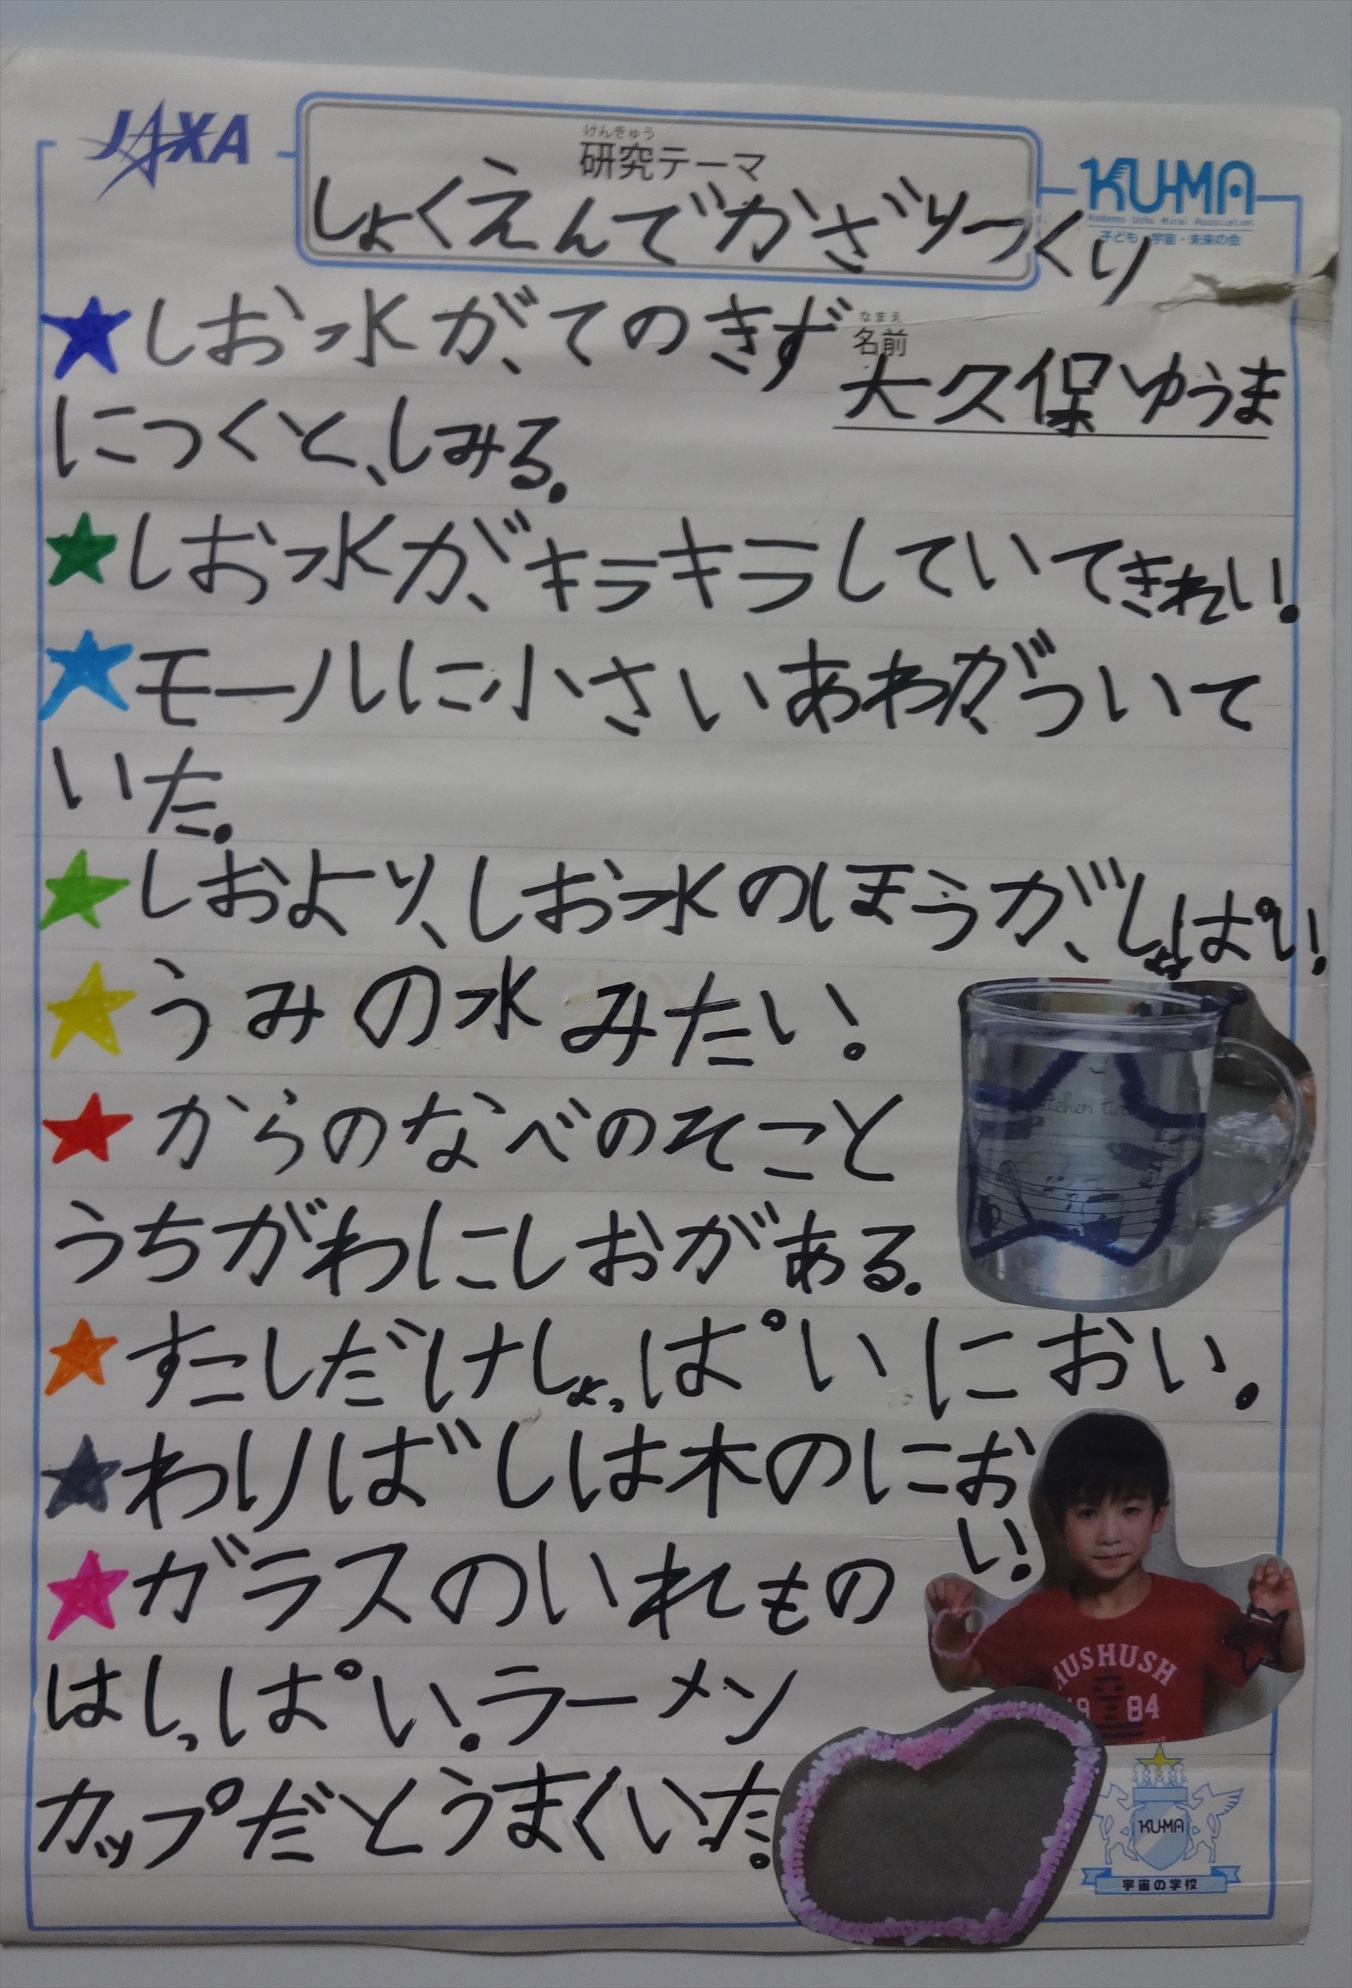 JAXA
けんきゅう
研究テーマ
しょくえんでかざりつくり
KU-MA
Kodomo Uchu Mirai Association
子ども・宇宙・未来の会
★しお水が、てのきず
なまえ
名前
大久保ゆうま
につくと、しみる。
★しお水が、キラキラしていてきれい!
★モールに小さいあわが、ついて
いた。
★しおより、しお水のほうが、しょっぱい!
★うみの水みたい!
★からのなべのそこと
うちがわにしおがある。
★すこしだけしょっぱいにおい。
★わりばしは木のにお
い!
★ガラスのいれもの
はしっぱい。ラーメン
カップだとうまくいた。
HUSHUSH
19 84
KU-MA
宇宙の学校